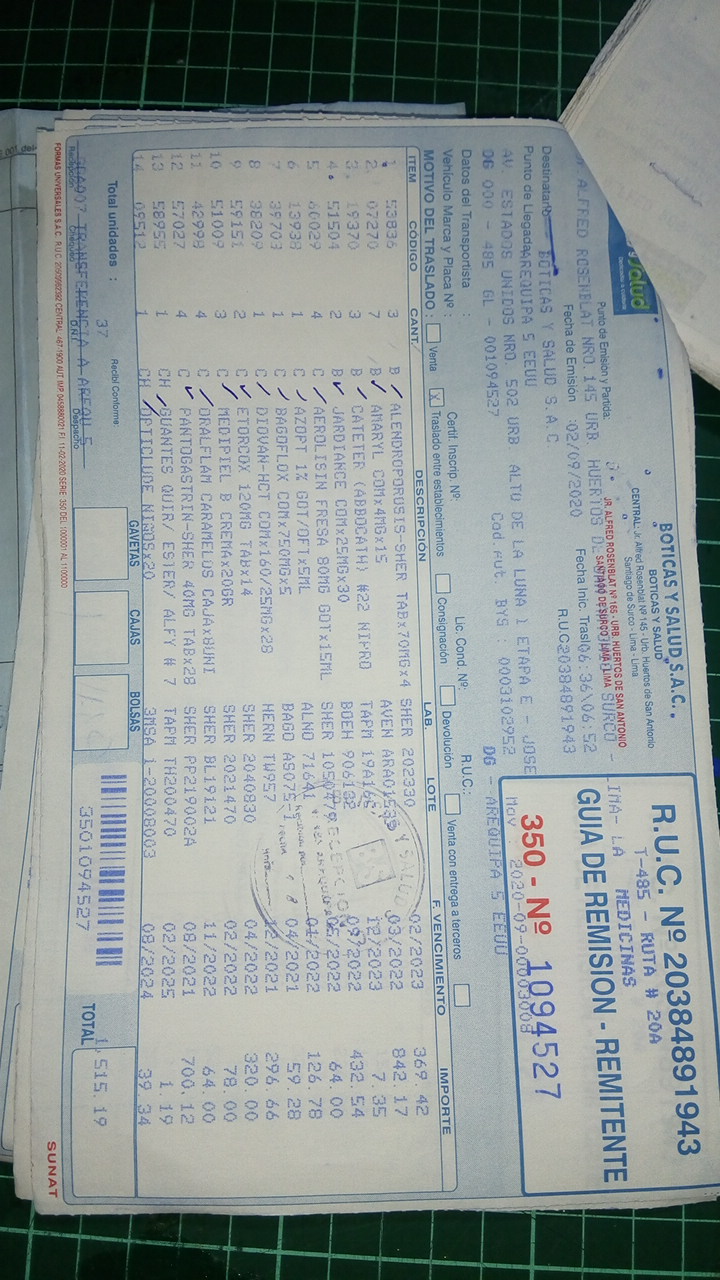 Salud
BOTICAS Y SALUD S.A.C.
BOTICAS Y SALUD
CENTRAL: Jr. Alfred Rosenblat Nº 145 - Urb. Huertos de San Antonio
Santiago de Surco - Lima - Lima
JR. ALFRED ROSENBLAT Nº 165 - URB. HUERTOS DE SAN ANTONIO
SANTIAGO DE SURCO - LIMA - LIMA
R.U.C. Nº 20384891943
T-485 - RUTA # 20A
MEDICINAS
GUIA DE REMISION - REMITENTE
350 - Nº 1094527
Mov. 2020-09-00003008
Punto de Emisión y Partida:
ALFRED ROSENBLAT NRO. 145 URB. HUERTOS SURCO - LIMA- LA
Fecha de Emisión :02/09/2020 Fecha Inic. Trasl 06:36\06:52
Destinatario BOTICAS Y SALUD S.A.C R.U.C 20384891943
Punto de Llegada AREQUIPA 5 EEUU
AV. ESTADOS UNIDOS NRO. 502 URB. ALTO DE LA LUNA 1 ETAPA E - JOSE DG - AREQUIPA 5 EEUU
DG 000 - 485 GL - 001094527 Cod.Aut. BYS : 0003102952
Datos del Transportista : R.U.C.:
Vehículo Marca y Placa Nº : Certif. Inscrip. Nº: Lic. Cond. Nº:
MOTIVO DEL TRASLADO: Venta X Traslado entre establecimientos Consignación Devolución Venta con entrega a terceros
ITEM CÓDIGO CANT. DESCRIPCIÓN LAB. LOTE F. VENCIMIENTO IMPORTE
1 53836 3 B ALENDROPOROSIS-SHER TABx70MGx4 SHER 202330 02/2023 369.42
2 07270 7 B AMARYL COMx4MGx15 AVEN 03/2022 842.17
3 19370 3 B CATETER (ABBOCATH) #22 NIPRO TAPM 12/2023 7.35
4 51504 2 B JARDIANCE COMx25MGx30 BOEH 09/2022 432.54
5 60029 4 C AEROLISIN FRESA 80MG GOTx15ML SHER /2022 64.00
6 13938 1 C AZOPT 1% GOT/OFTx5ML ALND 71641 01/2022 126.78
7 39703 1 C BAGOFLOX COMx750MGx5 BAGO AS075-1 04/2021 59.28
8 38209 1 C DIOVAN-HCT COMx160/25MGx28 HERN TW957 12/2021 296.66
9 59151 2 C ETORCOX 120MG TABx14 SHER 2040830 04/2022 320.00
10 51009 3 C MEDIPIEL B CREMAx20GR SHER 2021470 02/2022 78.00
11 42998 4 C ORALFLAM CARAMELOS CAJAx8UNI SHER BL19121 11/2022 64.00
12 57027 4 C PANTOGASTRIN-SHER 40MG TABx28 SHER PP219002A 08/2021 700.12
13 58955 1 CH GUANTES QUIR/ ESTER/ ALFY # 7 TAPM TH200470 02/2025 1.19
14 09512 1 CH OPTICLUDE NINOSx20 3MSA 1-20008003 08/2024 39.34
RECEPCION
Total unidades : 37 Recibí Conforme: GAVETAS CAJAS BOLSAS 3501094527 TOTAL 515.19
TRANSFERENCIA A AREQU 5
Recepción Chequeo DNI Despacho
FORMAS UNIVERSALES S.A.C. SERIE 350 DEL 1000001 AL 1100000
SUNAT